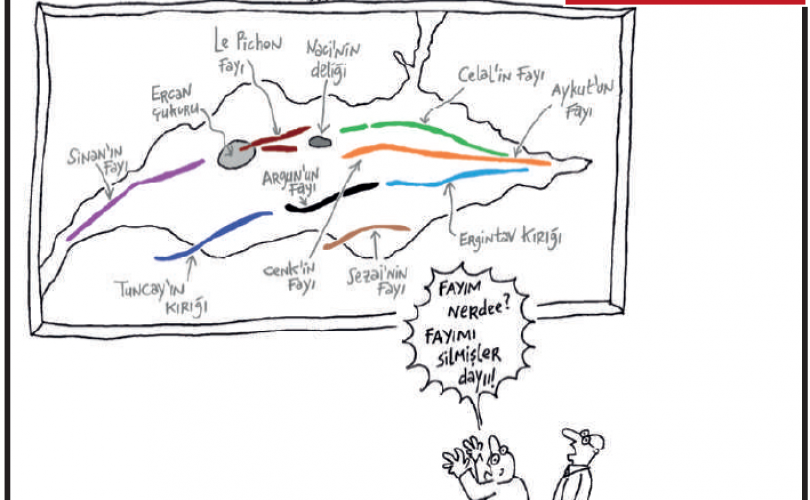 Le Pichon
Fayı
Naci'nin
deliği
Celal'in Fayı
Aykut'un
Fayı
Ercan
Çukuru
Sinan'ın
Fayı
Argun'un
Fayı
Ergintav Kırığı
Tuncay'ın
Kırığı
Cenk'in
Fayı
Sezai'nin
Fayı
FAYIM
Nerdee?
FAYIMI
SİLMİŞLER
dayıı!